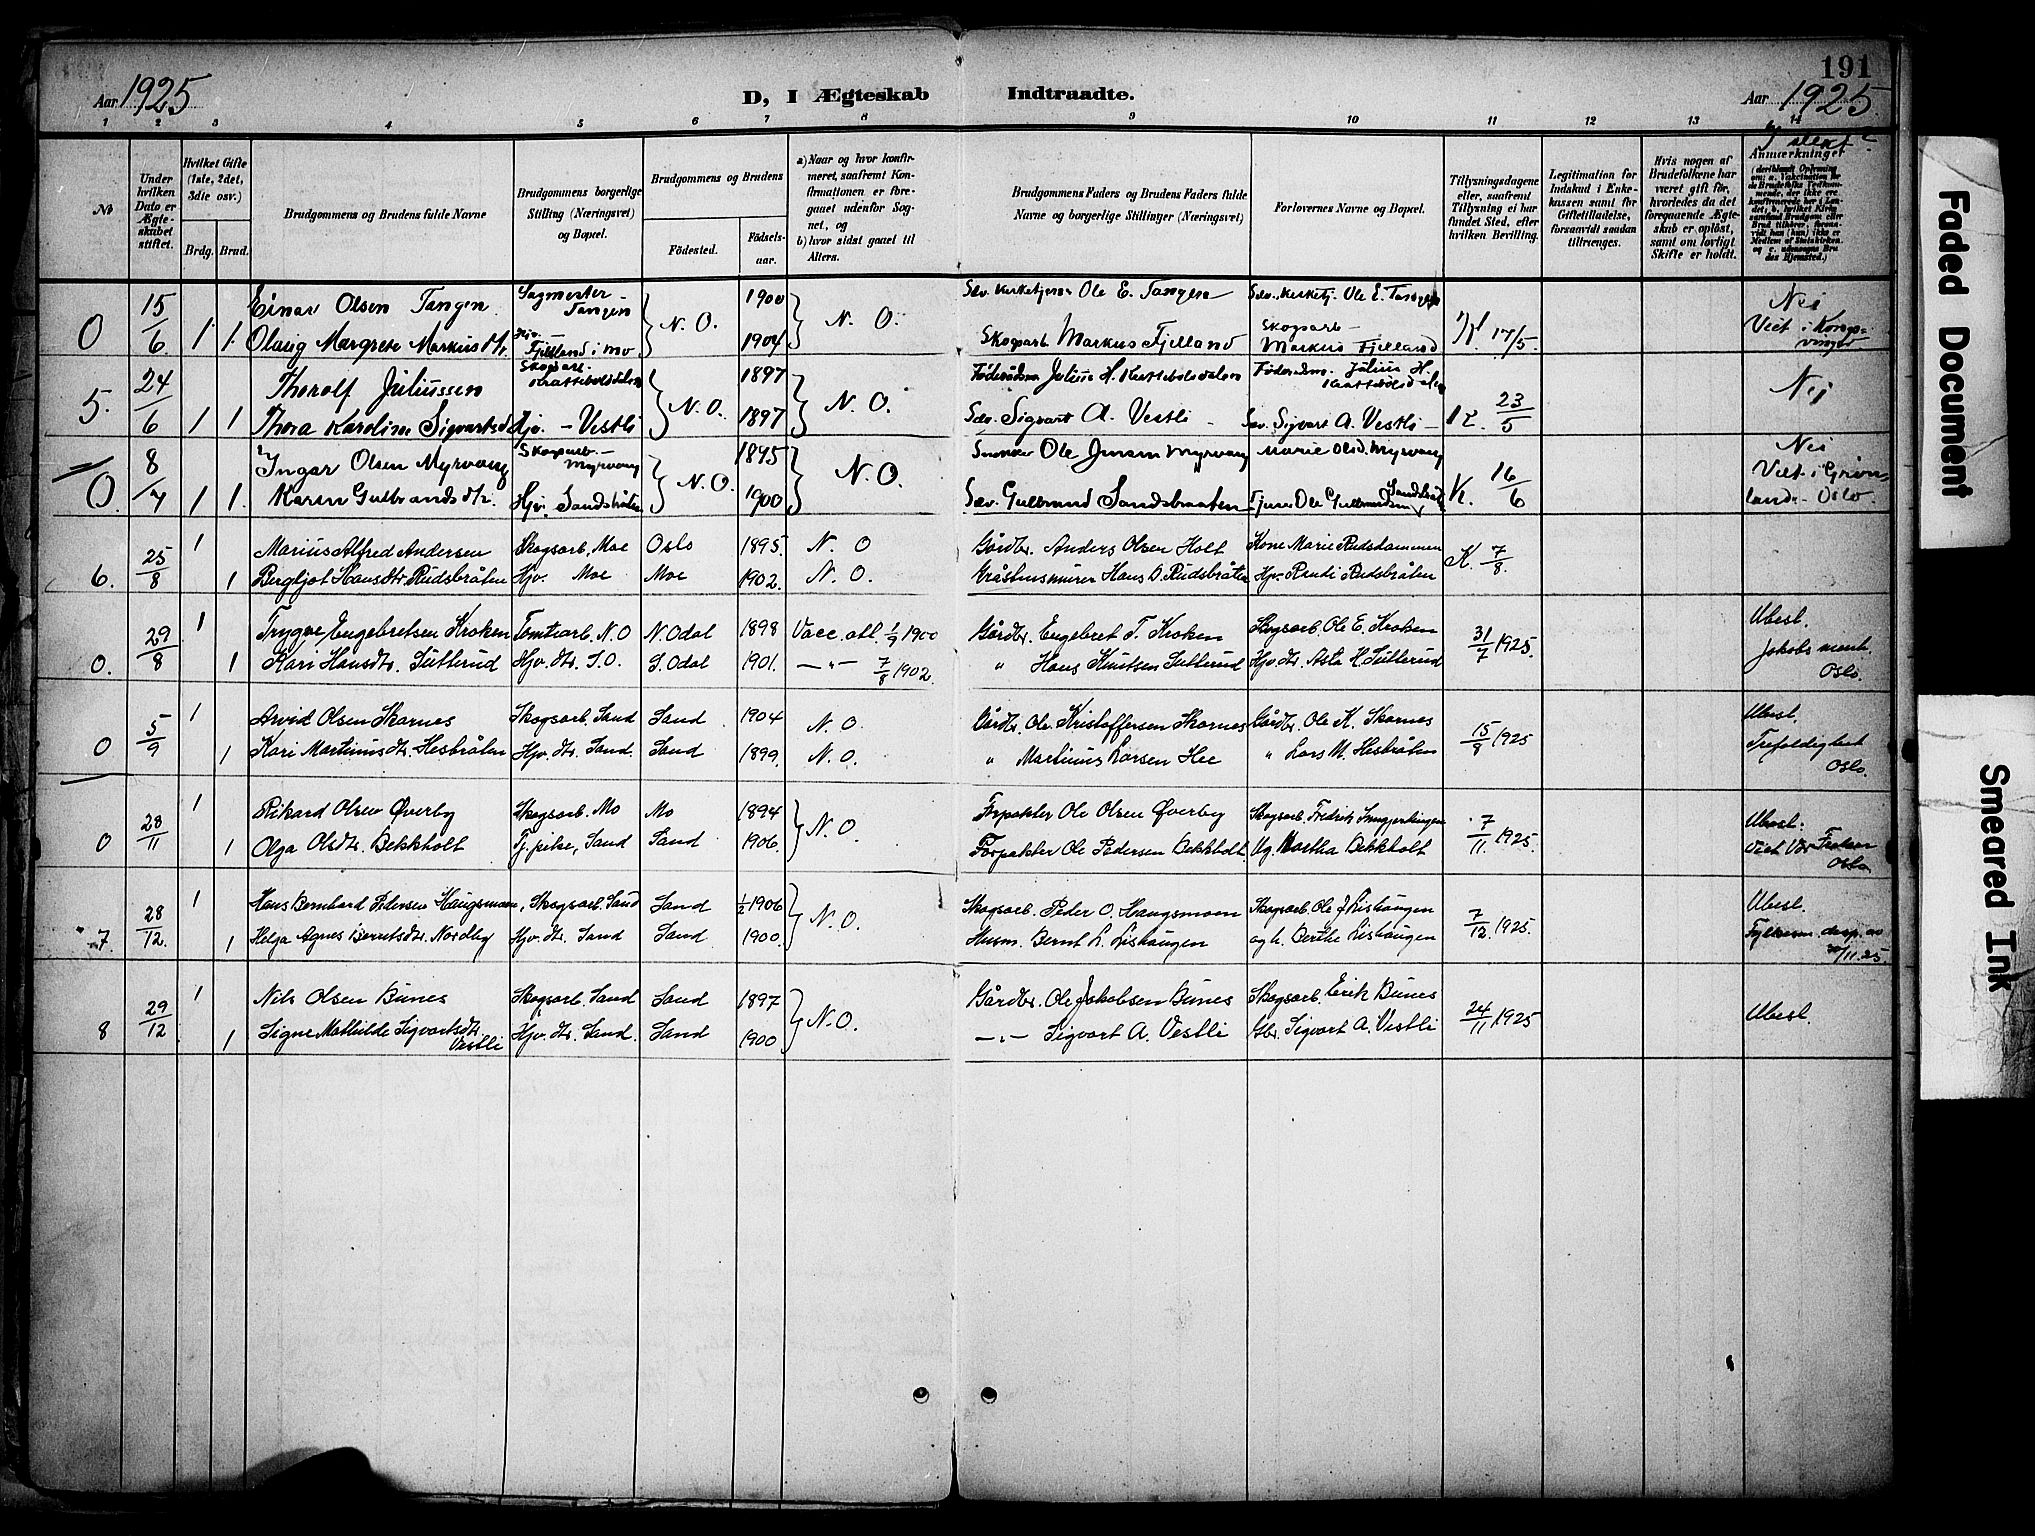 191
Aar 1925
D, I Ægteskab Indtraadte.
Aar 1925
1 2 3 4 5 6 7 8 9 10 11 12 13 14
No
Under hvilken Dato er Ægteskabet stiftet.
Hvilket Gifte (1ste, 2det, 3die osv.)
Brdg. Brud.
Brudgommens og Brudens fulde Navne
Brudgommens borgerlige Stilling (Næringsvei) og Bopæl.
Brudgommens og Brudens
Födested.
Födselsaar.
a) Naar og hvor konfirmeret, saafremt Konfirmationen er foregaaet udenfor Sognet, og
b) hvor sidst gaaet til Alters.
Brudgommens Faders og Brudens Faders fulde Navne og borgerlige Stillinger (Næringsvei)
Forlovernes Navne og Bopæl.
Tillysningsdagene eller, saafremt Tillysning ei har fundet Sted, efter hvilken Bevilling.
Legitimation for Indskud i Enkekassen samt for Giftetilladelse, forsaavidt saadan tiltrænges.
Hvis nogen af Brudefolkene har været gift för, hvorledes da det foregaaende Ægteskab er oplöst, samt om lovligt Skifte er holdt.
Anmærkninger
0 15/6 1 1 Einar Olsen Tangen Sagmester - Tangen N. O. 1900 N. O. Ole E. Tangen Ole E. Tangen 17/5 Nei
Olaug Margrete Markusdtr. Hjv. Fjelland i Mo 1904 Skogsarb. Markus Fjelland Skogsarb - Markus Fjelland Viet i Kongsvinger
5. 24/6 1 1 Thorolf Juliussen Skogsarb. N. O. 1897 N. O. Julius H. Kattebolsdalen Julius H. Kattebolsdalen 23/5 Nej
Thora Karoline Sigvartsd. Hjv. - Vestli 1897 Sev. Sigvart A. Vestli Sev. Sigvart A. Vestli -
0. 8/7 1 1 Ingar Olsen Myrvang Skogsarb. - Myrvang N. O. 1895 N. O. Ole Jensen Myrvang Marie Olsd. Myrvang K. 16/6 Nei
Karen Gulbrandsdtr. Hjv. Sandsbråten 1900 Sev. Gulbrand Sandsbraaten Ole Gulbrandsen Viet i Grønland - Oslo.
6. 25/8 1 Marius Alfred Andersen Skogsarb. Moe Oslo 1895. N. O Gårdbr. Anders Olsen Holt Kone Marie Rudsdammen K. 7/8.
1 Bergljot Hansdtr. Rudsbråten Hjv. Moe Moe 1902. N. O. Gråstensmurer Hans O. Rudsbråten Hjv. Randi Rudsbråten
0. 29/8 1 Trygve Engebretsen Kroken Tomtearb. N.O N. Odal 1898 Vacc. att. 1/9 1900 Gårdbr. Engebret T. Kroken Skogsarb. Ole E. Kroken 31/7 1925. Ubesl.
1 Kari Hansdtr. Sætterud Hjv. dtr. S.O. S. Odal 1901. —"— 7/8 1902. " Hans Knutsen Sætterud Hjv. dtr. Asta H. Sætterud Jakobs menh. Oslo.
0 5/9 1 Arvid Olsen Skarnes Skogsarb. Sand Sand 1904 N. O. Gårdbr. Ole Kristoffersen Skarnes Gårdbr. Ole K. Skarnes 15/8 1925 Ubesl.
1 Kari Martiniusdtr. Hesbråten Hjv. dtr. Sand Sand 1899. N. O. " Martinius Larsen Hee " Lars M. Hesbråten Trefoldighet Oslo.
0 28/11 1 Rikard Olsen Øverby Skogsarb. Mo Mo 1894 N. O. Forpakter Ole Olsen Øverby Skogsarb. Fredrik 7/11 1925. Ubesl.
1 Olga Olsdtr. Bekkholt Tj. pike, Sand Sand 1906. Forpakter Ole Pedersen Bekkholt Ug. Martha Bekkholt Viet Vår Frelser Oslo
7. 28/12. 1 Hans Bernhard Pedersen Haugsmoen, Skogsarb. Sand Sand 1/2 1906 N. O. Skogsarb. Peder O. Haugsmoen Skogsarb. Ole J. Lishaugen 7/12. 1925. Ubesl.
1 Helga Agnes Berntsdtr. Nordby Hjv. dtr. Sand Sand 1900. Husm. Bernt L. Lishaugen og h. Berthe Lishaugen Fylkesm. disp. av /11. 25.
8 29/12 1 Nils Olsen Bunes Skogsarb. Sand Sand 1897 N. O. Gårdbr. Ole Jakobsen Bunes Skogsarb. Erik Bunes 24/11 1925 Ubesl.
1 Signe Mathilde Sigvartsdtr. Vestli Hjv. dtr. Sand. Sand 1900 —"— Sigvart A. Vestli Gbr. Sigvart A. Vestli
Faded Document
Smeared Ink